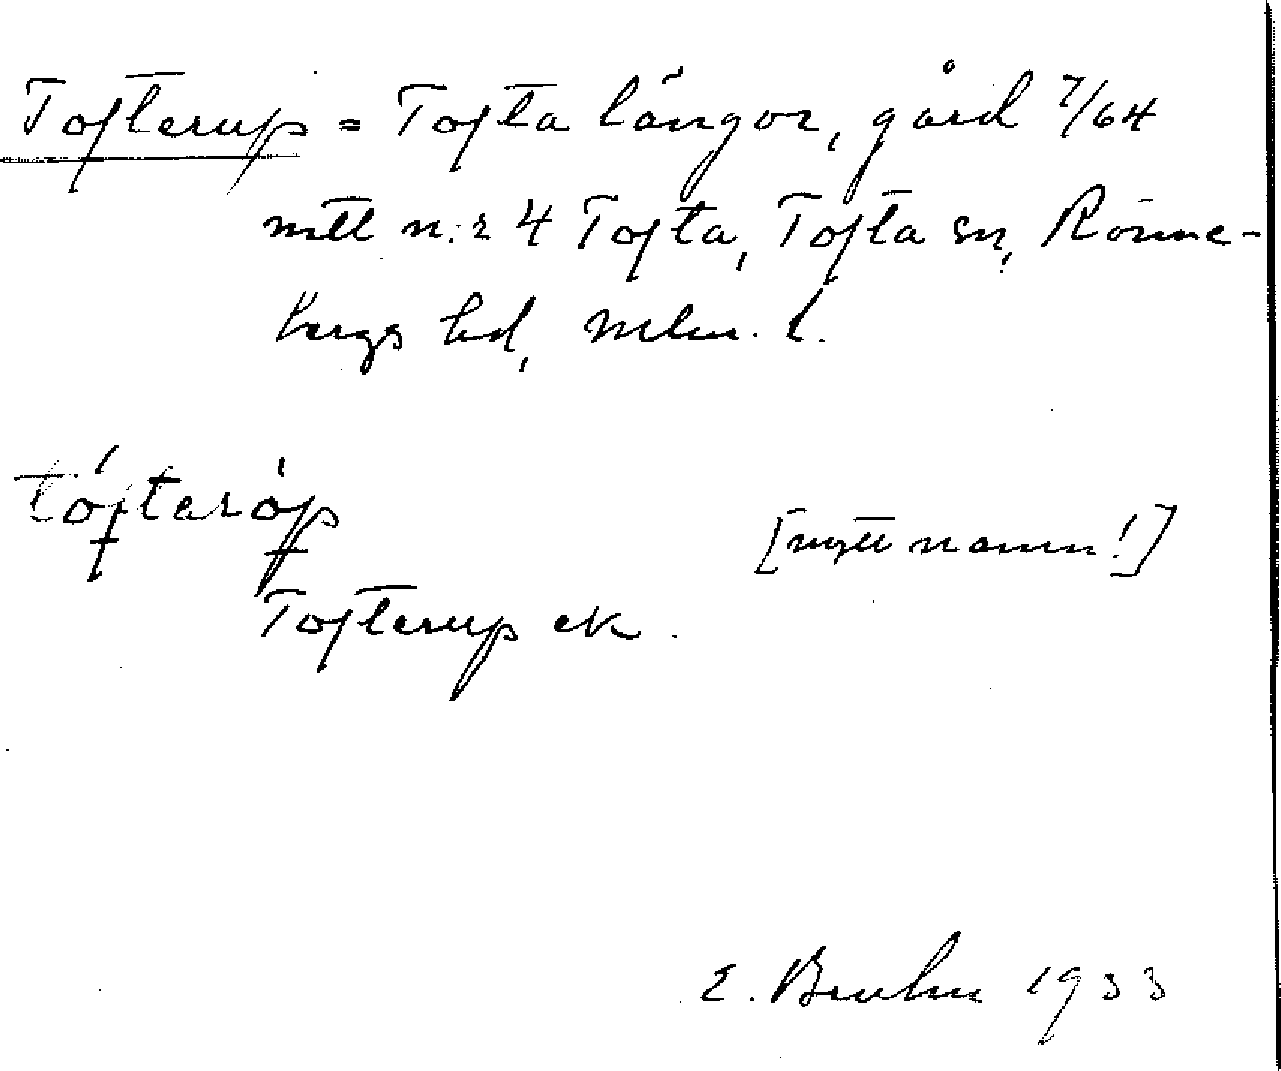 Tofterup = Tofta längor, gård 7/64
mtl n:r 4 Tofta, Tofta sn, Rönne-
bergs hd, Mlm. l.
tóftaróp
[nytt namn!]
Tofterup ek.
E. Bruhn 1933